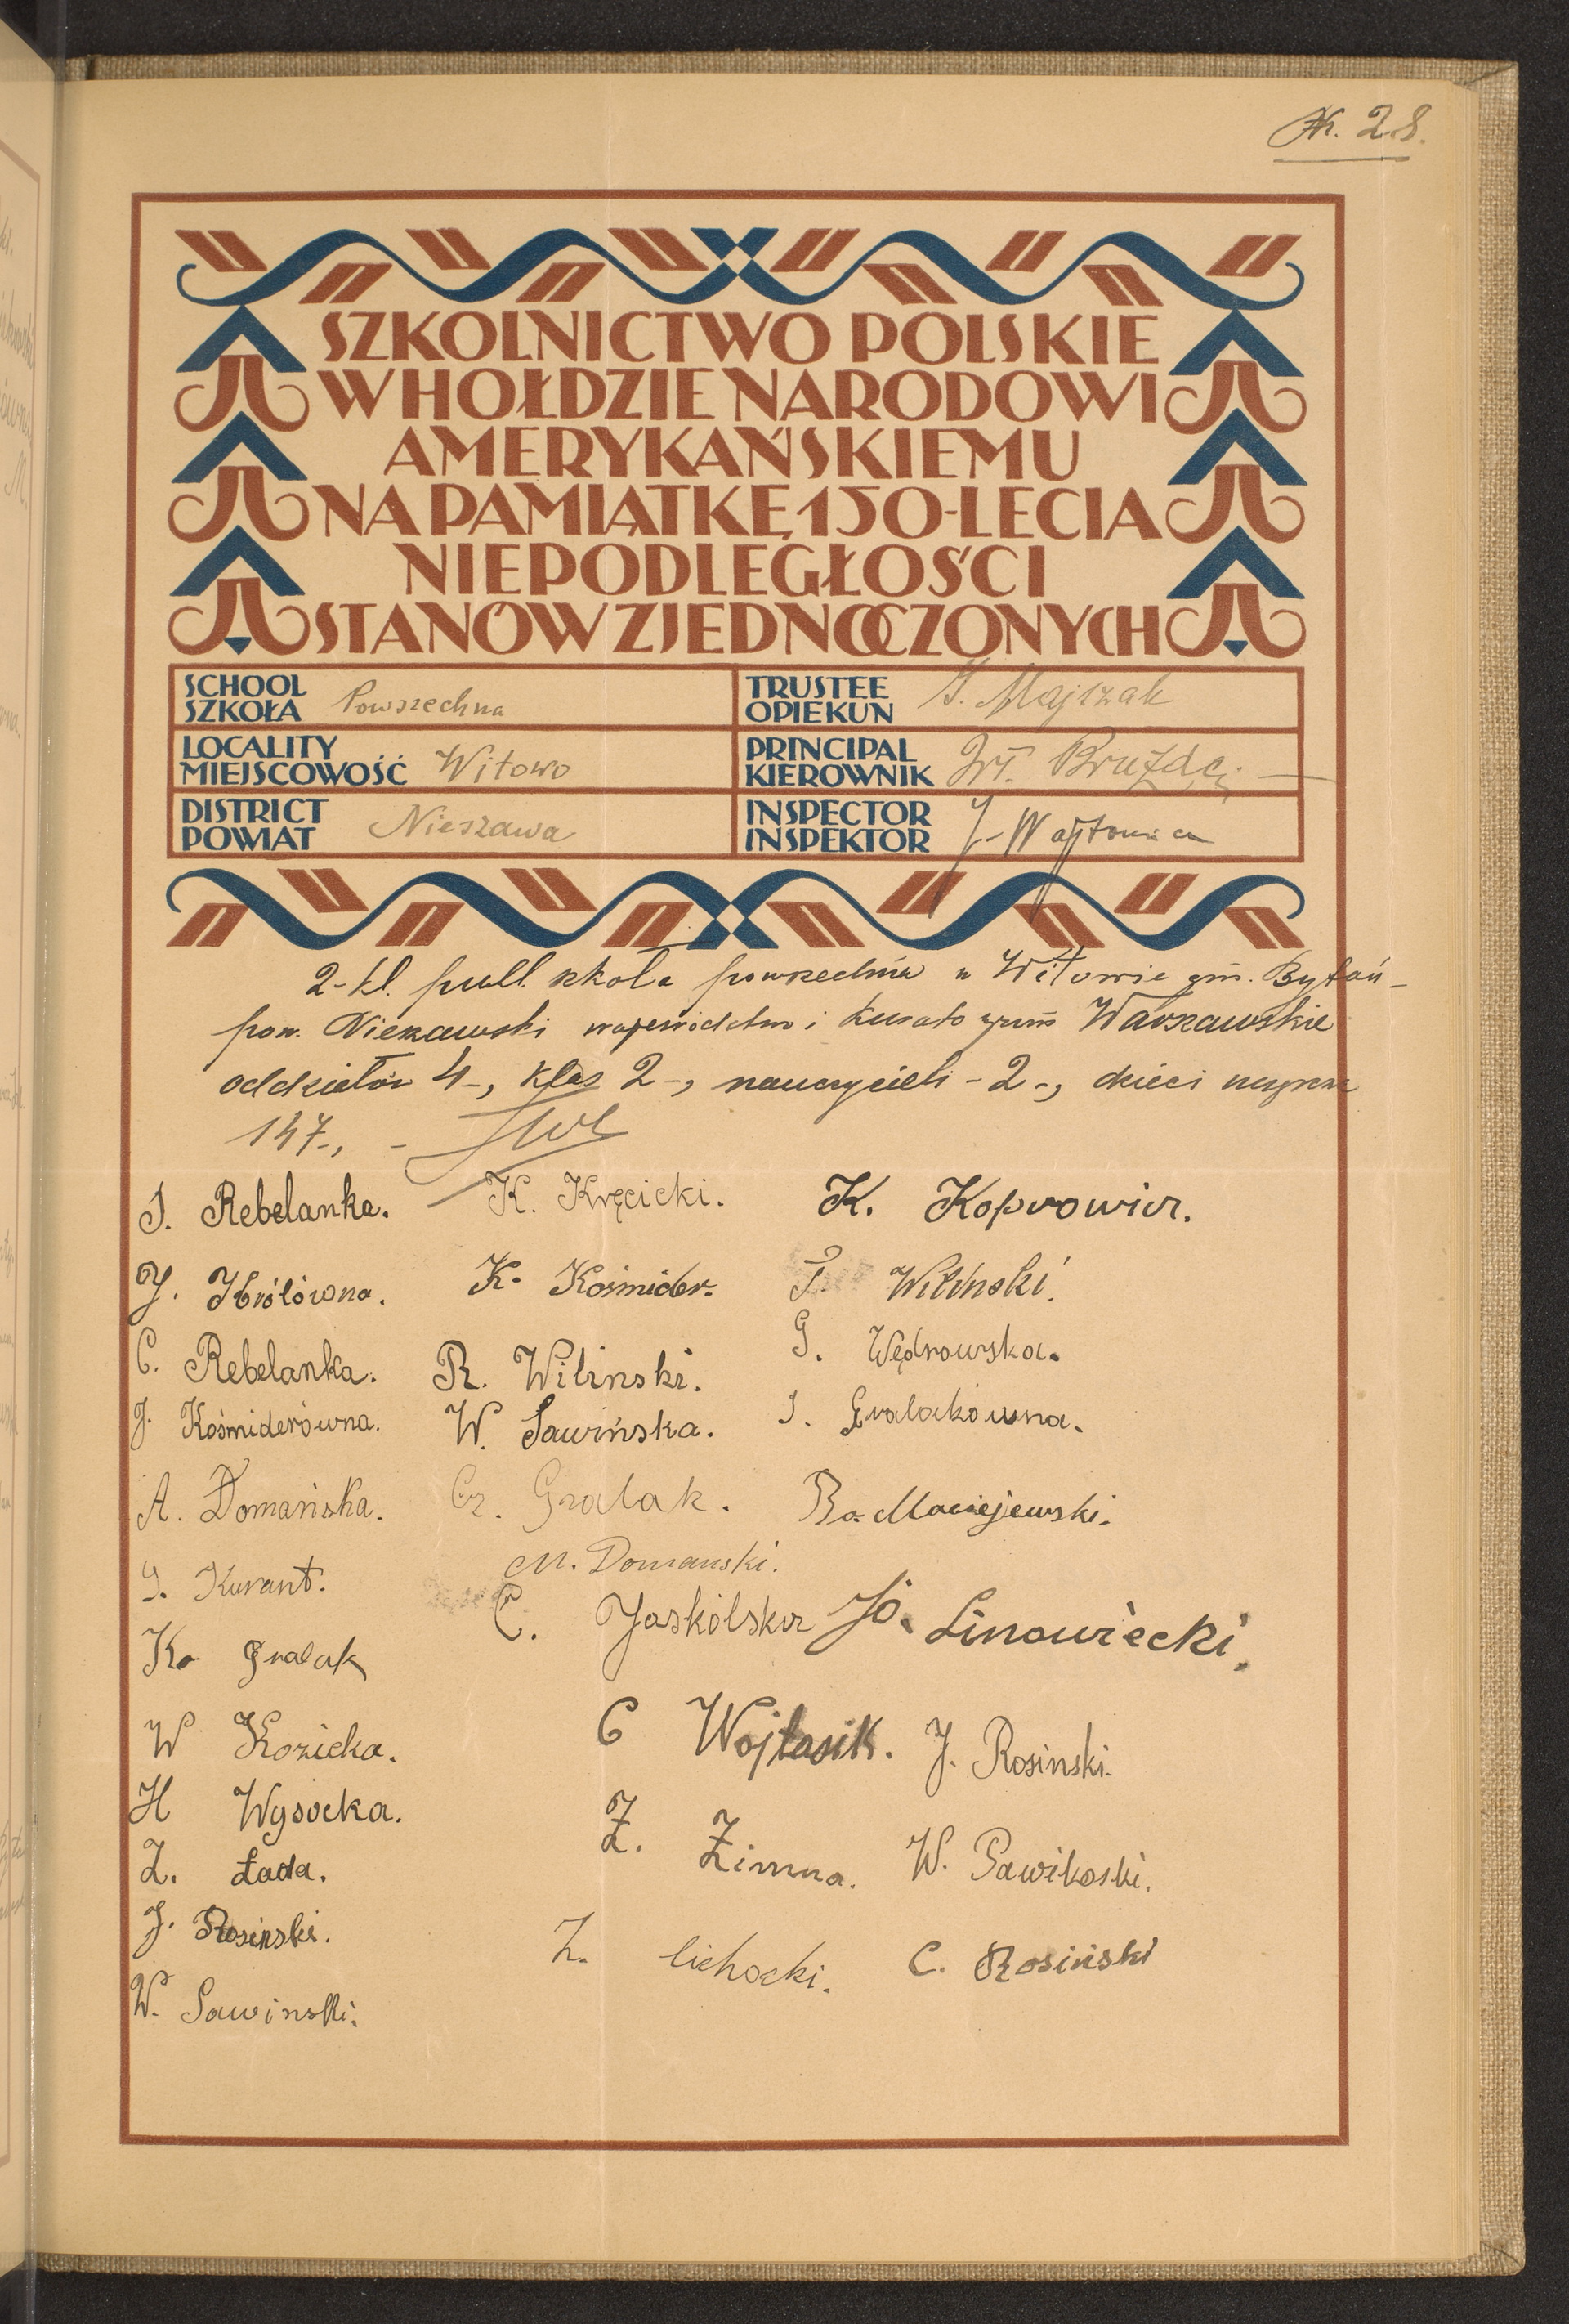 Nr. 28.
SZKOLNICTWO POLSKIE
W HOŁDZIE NARODOWI
AMERYKAŃSKIEMU
NA PAMIĄTKĘ 150-LECIA
NIEPODLEGŁOŚCI
STANÓW ZJEDNOCZONYCH
SCHOOL
SZKOŁA Powszechna
TRUSTEE
OPIEKUN J. Majszak
LOCALITY
MIEJSCOWOŚĆ Witowo
PRINCIPAL
KIEROWNIK Wł. Bruźdą
DISTRICT
POWIAT Nieszawa
INSPECTOR
INSPEKTOR J. Wojtowicz
2-kl. publ. szkoła powszechna w Witowie gm. Bytoń
pow. Nieszawski województwo i Kuratorjum Warszawskie
oddziałów 4-, klas 2-, nauczycieli - 2-, dzieci
147-, -
J. Rebelanka. K. Kręcicki. K. Koprowicz.
J. Królówna. K. Kośmider. F. Wilinski.
C. Rebelanka. R. Wilinski. G. Wędrowska.
J. Kośmiderówna. W. Sawińska. J. Gralakówna.
A. Domańska. Cz. Gralak. B. Maciejewski.
J. Kurant. M. Domanski.
K. Gralak C. Jaskólska Jó. Linowiecki.
W Kozicka. C Wojtasik. J. Rosinski.
H Wysocka. Z. Zimna. W. Pawikoski.
Z. Łada.
J. Rosinski. Z. Cichocki. C. Rosiński
W. Sawinski.